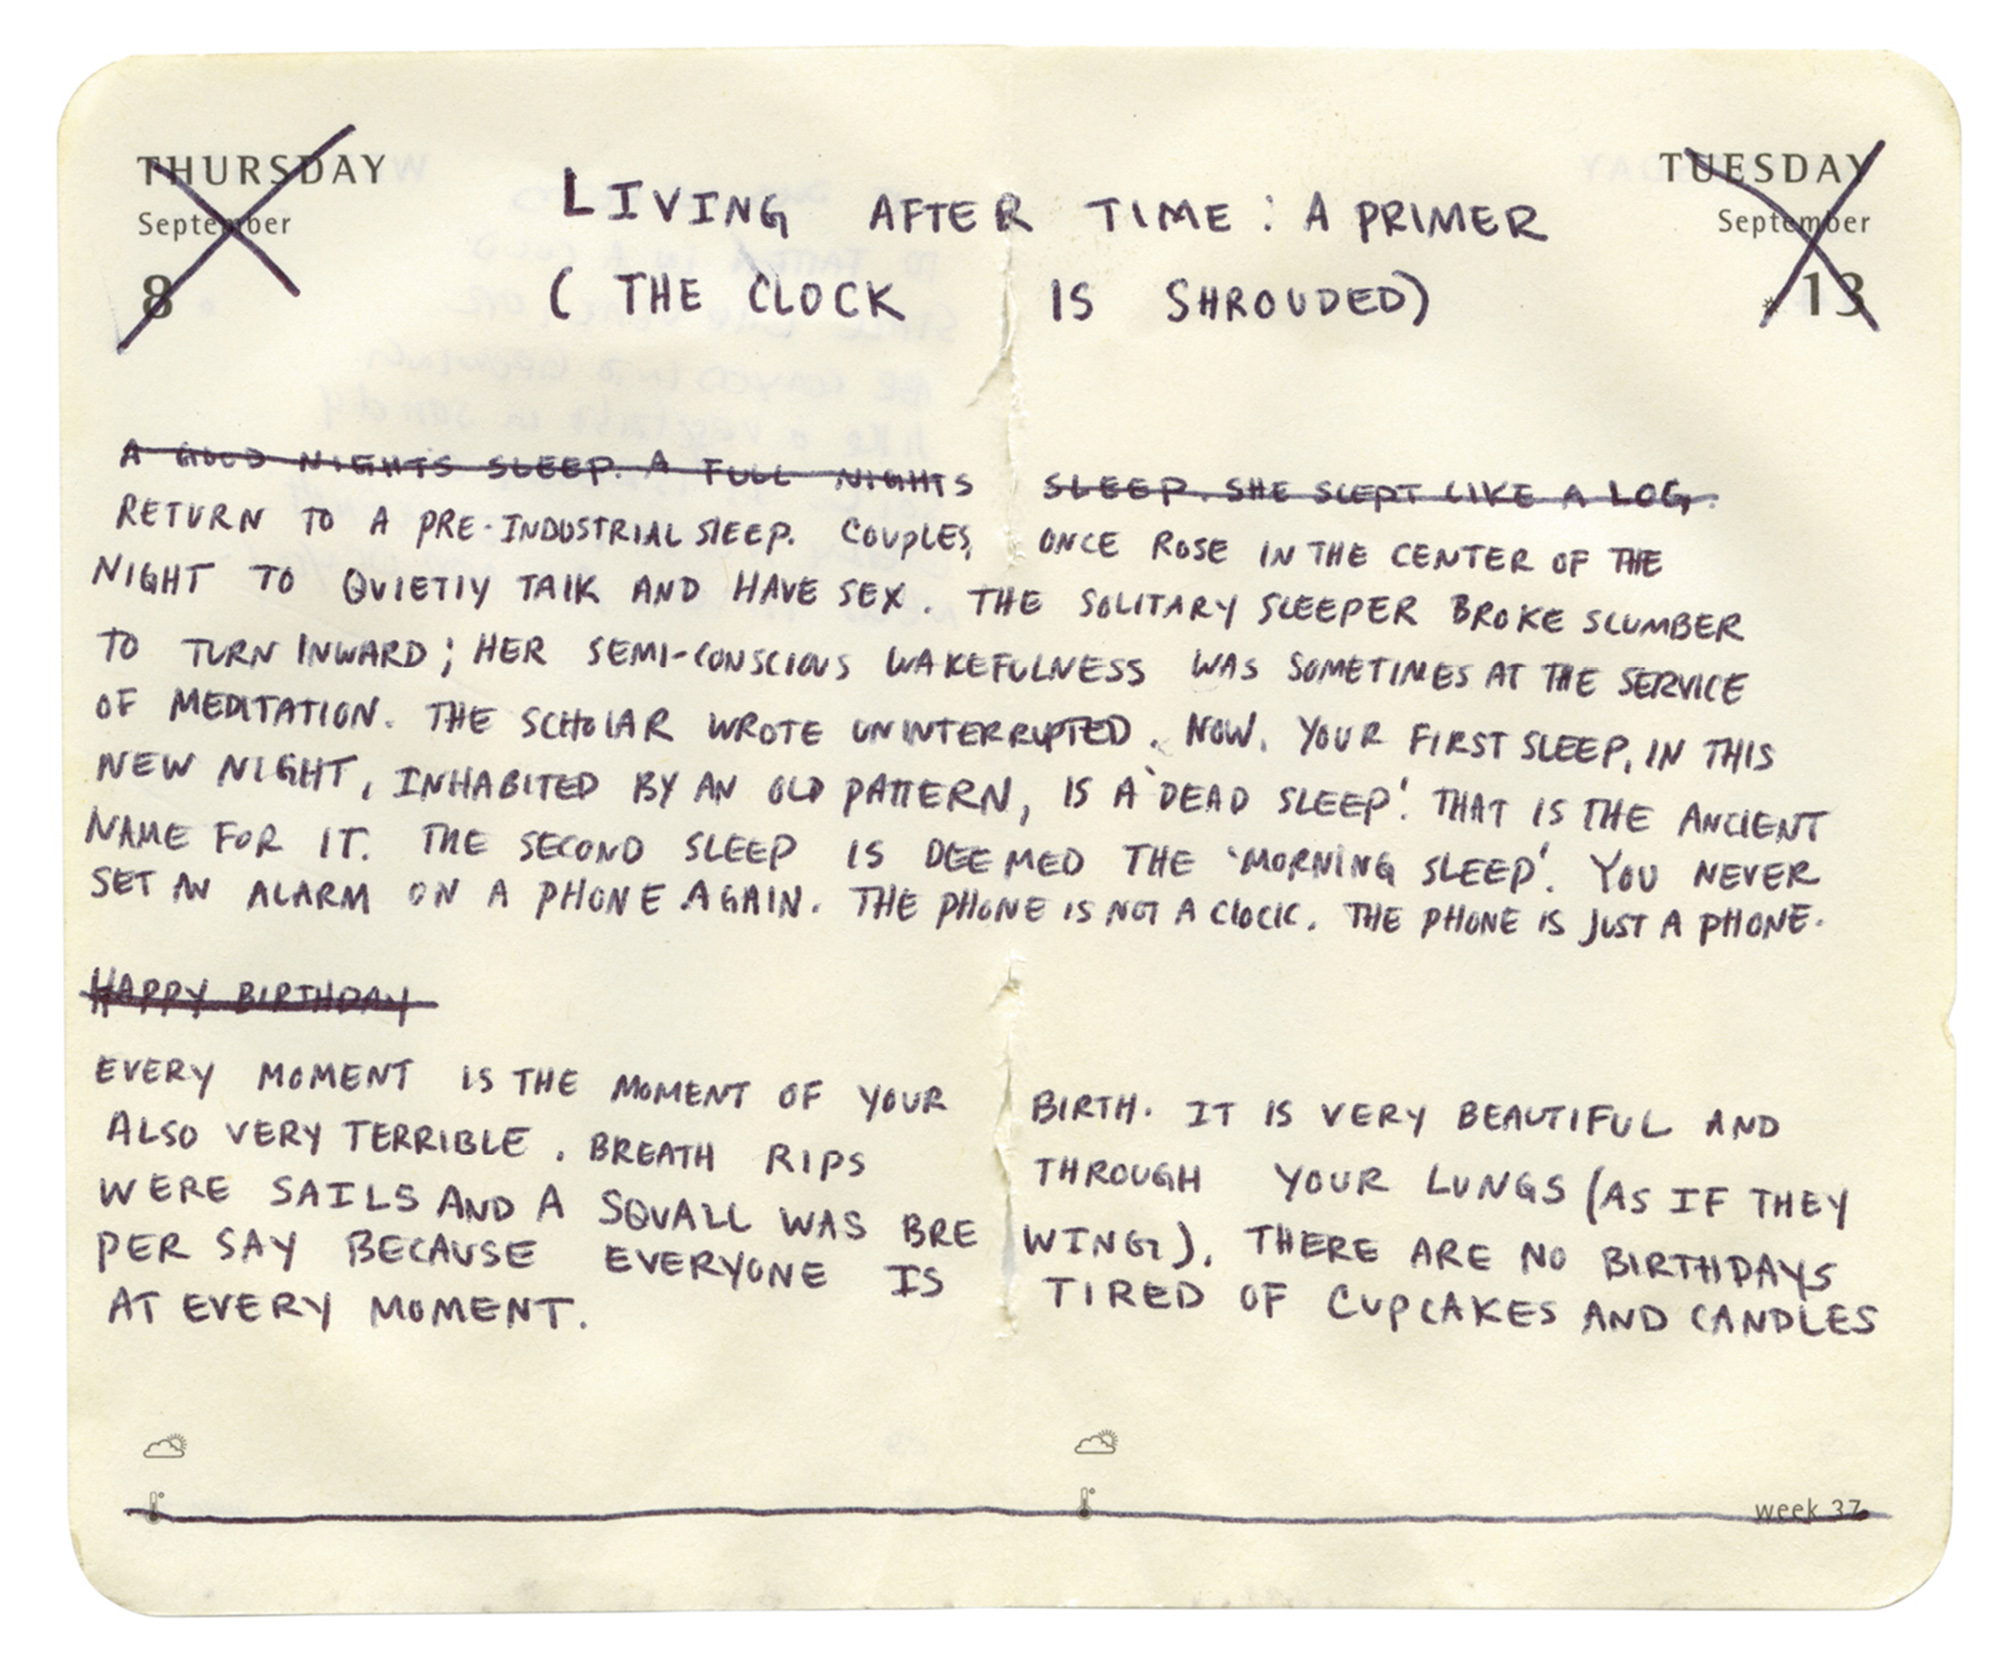 THURSDAY
September
8
TUESDAY
September
13
LIVING AFTER TIME: A PRIMER
(THE CLOCK IS SHROUDED)
A GOOD NIGHTS SLEEP. A FULL NIGHTS SLEEP. SHE SLEPT LIKE A LOG.
RETURN TO A PRE-INDUSTRIAL SLEEP. COUPLES, ONCE ROSE IN THE CENTER OF THE
NIGHT TO QUIETLY TALK AND HAVE SEX. THE SOLITARY SLEEPER BROKE SLUMBER
TO TURN INWARD; HER SEMI-CONSCIOUS WAKEFULNESS WAS SOMETIMES AT THE SERVICE
OF MEDITATION. THE SCHOLAR WROTE UNINTERRUPTED. NOW, YOUR FIRST SLEEP, IN THIS
NEW NIGHT, INHABITED BY AN OLD PATTERN, IS A 'DEAD SLEEP'. THAT IS THE ANCIENT
NAME FOR IT. THE SECOND SLEEP IS DEEMED THE 'MORNING SLEEP'. YOU NEVER
SET AN ALARM ON A PHONE AGAIN. THE PHONE IS NOT A CLOCK. THE PHONE IS JUST A PHONE.
HAPPY BIRTHDAY
EVERY MOMENT IS THE MOMENT OF YOUR BIRTH. IT IS VERY BEAUTIFUL AND
ALSO VERY TERRIBLE. BREATH RIPS THROUGH YOUR LUNGS (AS IF THEY
WERE SAILS AND A SQUALL WAS BREWING). THERE ARE NO BIRTHDAYS
PER SAY BECAUSE EVERYONE IS TIRED OF CUPCAKES AND CANDLES
AT EVERY MOMENT.
week 37